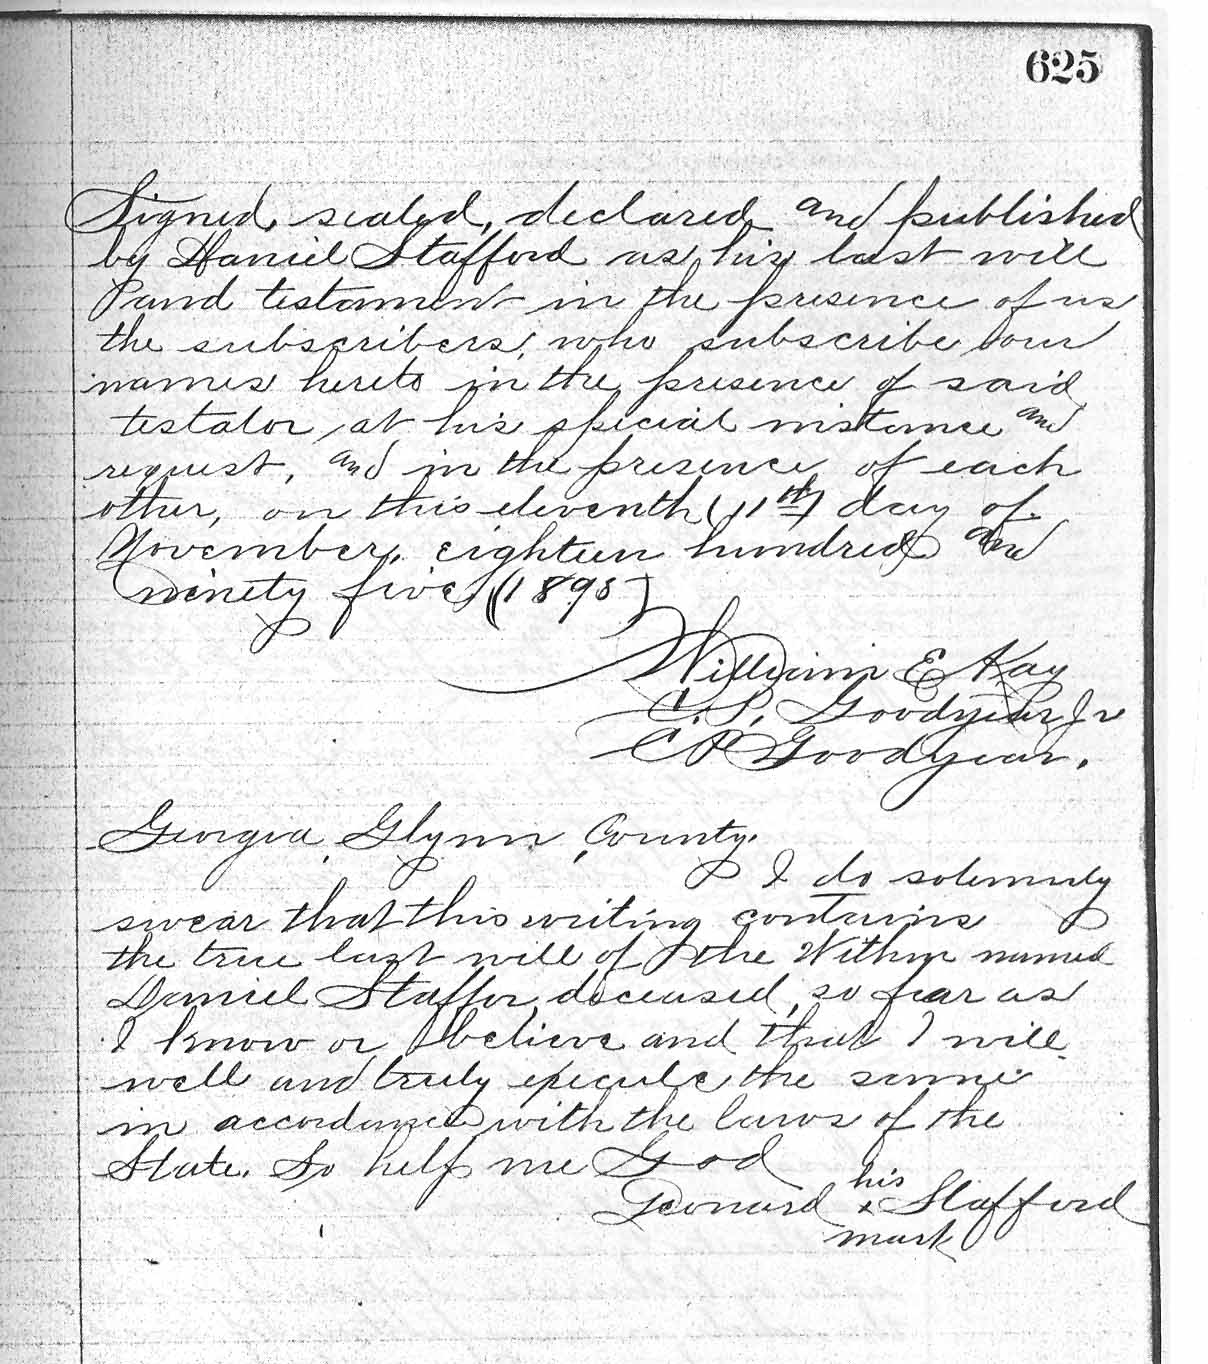 625
Signed, sealed, declared and published
by Daniel Stafford as his last will
and testament in the presence of us
the subscribers, who subscribe our
names hereto in the presence of said
testator, at his special instance and
request, and in the presence of each
other, on this eleventh (11th) day of
November, eighteen hundred and
ninety five (1895)
William E Kay
C. P. Goodyear Jr
C P Goodyear.
Georgia, Glynn County.
I do solemnly
swear that this writing contains
the true last will of the Within named
Daniel Staffor, deceased, so far as
I know or believe and that I will
well and truly execute the same
in accordance with the laws of the
State. So help me God
Leonard his x mark Stafford